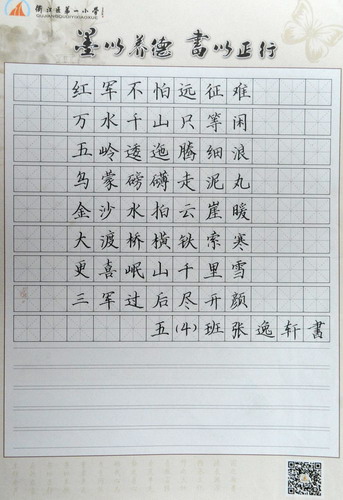 衢江区第一小学
QUJIANGQUDIYIXIAOXUE
墨以养德 書以正行
红军不怕远征难
万水千山只等闲
五岭逶迤腾细浪
乌蒙磅礴走泥丸
金沙水拍云崖暖
大渡桥横铁索寒
更喜岷山千里雪
三军过后尽开颜
五(4)班张逸轩書